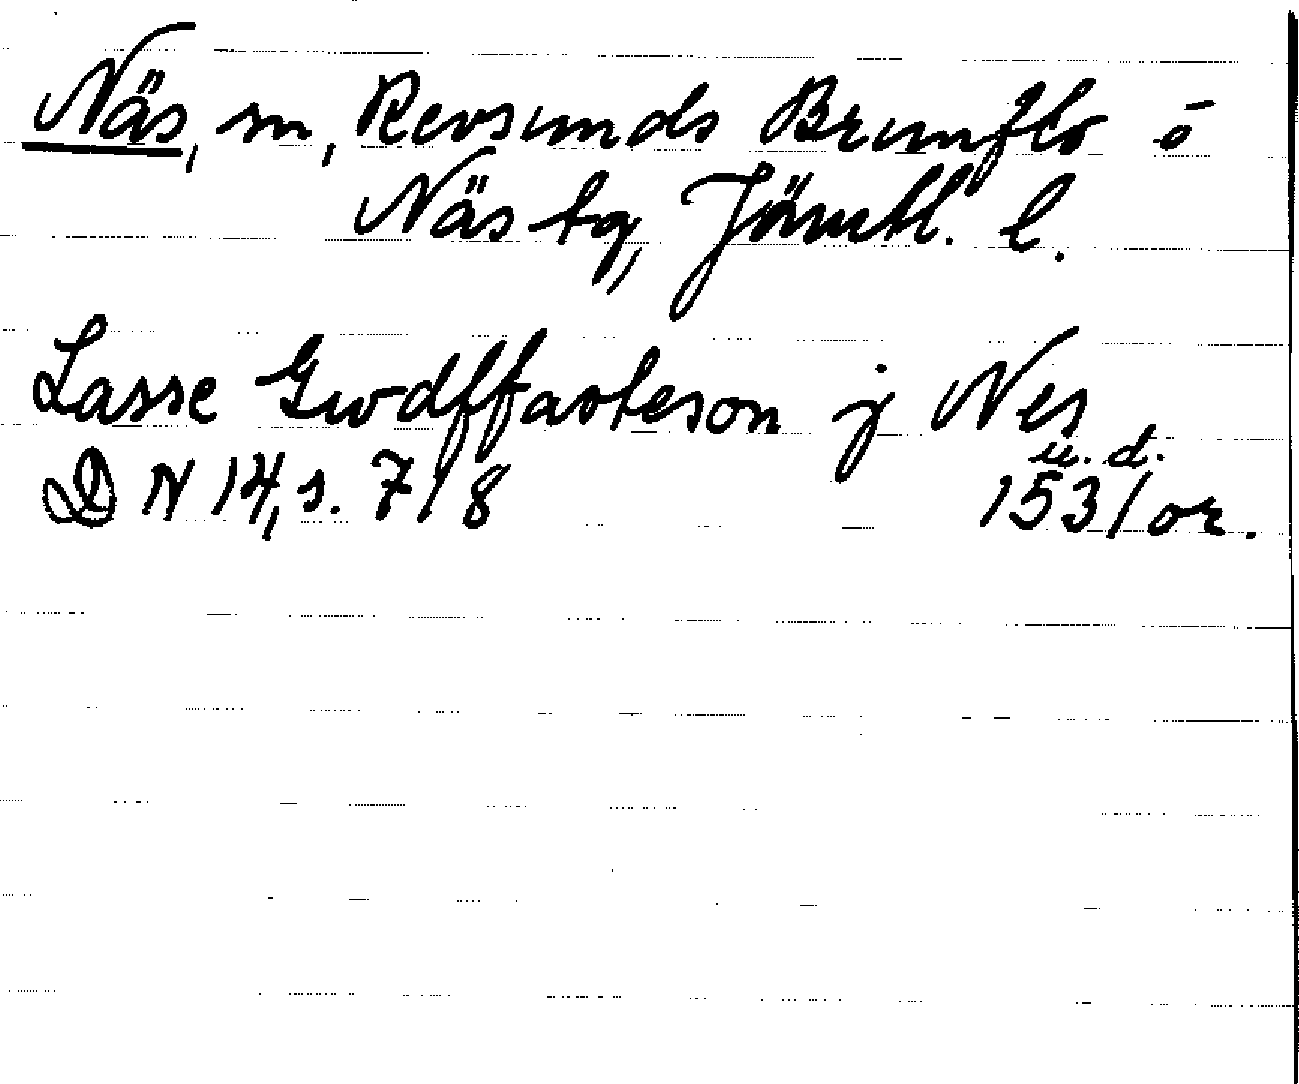 Näs, sn, Revsunds Brunflo o
Näs tg, Jämtl. l.
Lasse Gwdffasteson j Nes
u. d.
DN 14, s. 718 1531 or.